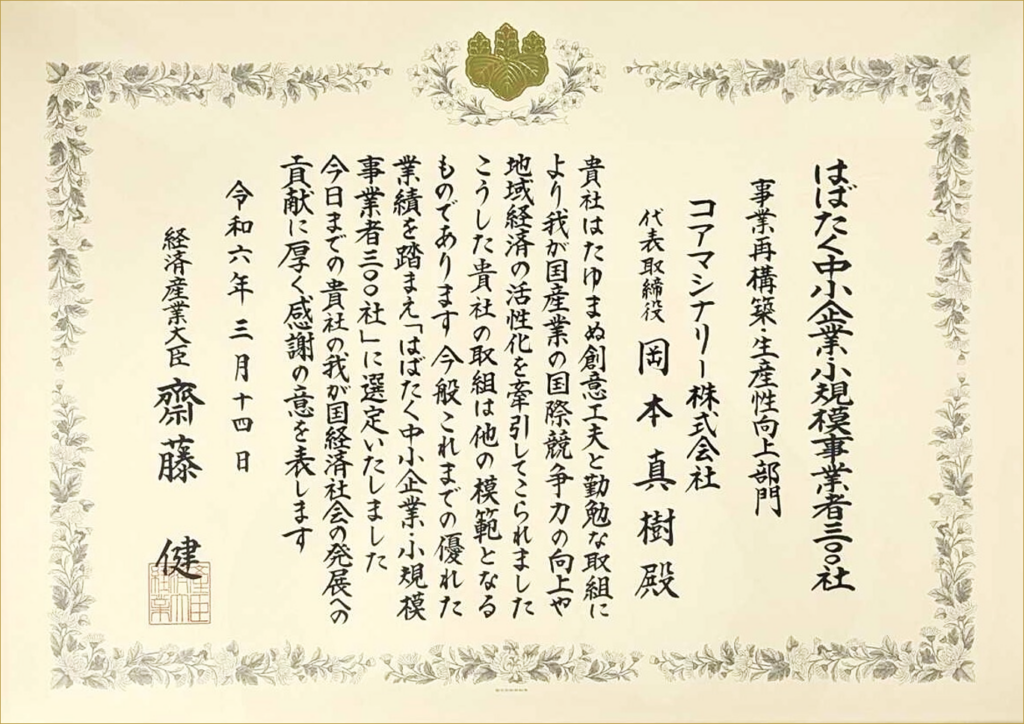 はばたく中小企業・小規模事業者三〇〇社
事業再構築・生産性向上部門
コアマシナリー株式会社
代表取締役 岡本真樹殿
貴社はたゆまぬ創意工夫と勤勉な取組に
より我が国産業の国際競争力の向上や
地域経済の活性化を牽引してこられました
こうした貴社の取組は他の模範となる
ものであります今般これまでの優れた
業績を踏まえ「はばたく中小企業・小規模
事業者三〇〇社」に選定いたしました
今日までの貴社の我が国経済社会の発展への
貢献に厚く感謝の意を表します
令和六年三月十四日
経済産業大臣 齋藤健